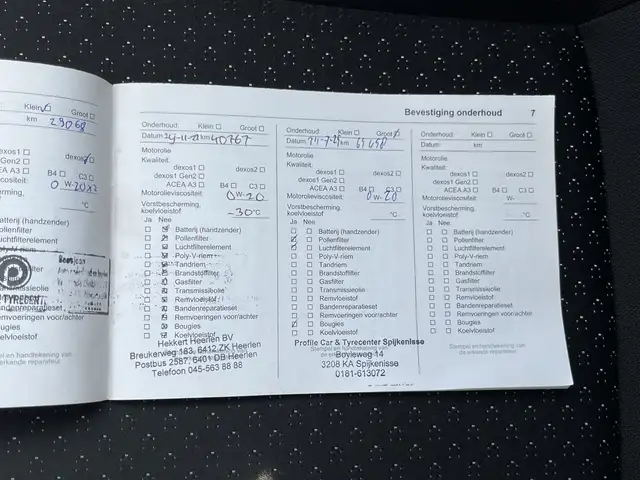 Bevestiging onderhoud 7
Klein Groot
km 29068
dexos1 dexos2
Gen2
ACEA A3 B4 C3
viscositeit: 0W-20
°C
Batterij (handzender)
Pollenfilter
Luchtfilterelement
Poly-V-riem
TYRECEN
Bandenreparatieset
Remvoeringen voor/achter
Bougies
Koelvloeistof
Stempel en handtekening van de erkende reparateur
Onderhoud: Klein Groot
Datum km 40767
Motorolie
Kwaliteit:
dexos1 dexos2
dexos1 Gen2
ACEA A3 B4 C3
Motorolieviscositeit: 0W-20
Vorstbescherming, koelvloeistof -30°C
Ja Nee
Batterij (handzender)
Pollenfilter
Luchtfilterelement
Poly-V-riem
Tandriem
Brandstoffilter
Gasfilter
Transmissieolie
Remvloeistof
Bandenreparatieset
Remvoeringen voor/achter
Bougies
Koelvloeistof
Hekkert Heerlen BV
Breukerweg 183, 6412 ZK Heerlen
Postbus 2587, 6401 DB Heerlen
Telefoon 045-563 88 88
Onderhoud: Klein Groot
Datum km
Motorolie
Kwaliteit:
dexos1 dexos2
dexos1 Gen2
ACEA A3 B4 C3
Motorolieviscositeit: 0W-20
Vorstbescherming, koelvloeistof °C
Ja Nee
Batterij (handzender)
Pollenfilter
Luchtfilterelement
Poly-V-riem
Tandriem
Brandstoffilter
Gasfilter
Transmissieolie
Remvloeistof
Bandenreparatieset
Remvoeringen voor/achter
Bougies
Koelvloeistof
Profile Car & Tyrecenter Spijkenisse
Stempel en handtekening van
Boyleweg 14
3208 KA Spijkenisse
0181-613072
Onderhoud: Klein Groot
Datum km
Motorolie
Kwaliteit:
dexos1 dexos2
dexos1 Gen2
ACEA A3 B4 C3
Motorolieviscositeit: W-
Vorstbescherming, koelvloeistof °C
Ja Nee
Batterij (handzender)
Pollenfilter
Luchtfilterelement
Poly-V-riem
Tandriem
Brandstoffilter
Gasfilter
Transmissieolie
Remvloeistof
Bandenreparatieset
Remvoeringen voor/achter
Bougies
Koelvloeistof
Stempel en handtekening van
de erkende reparateur